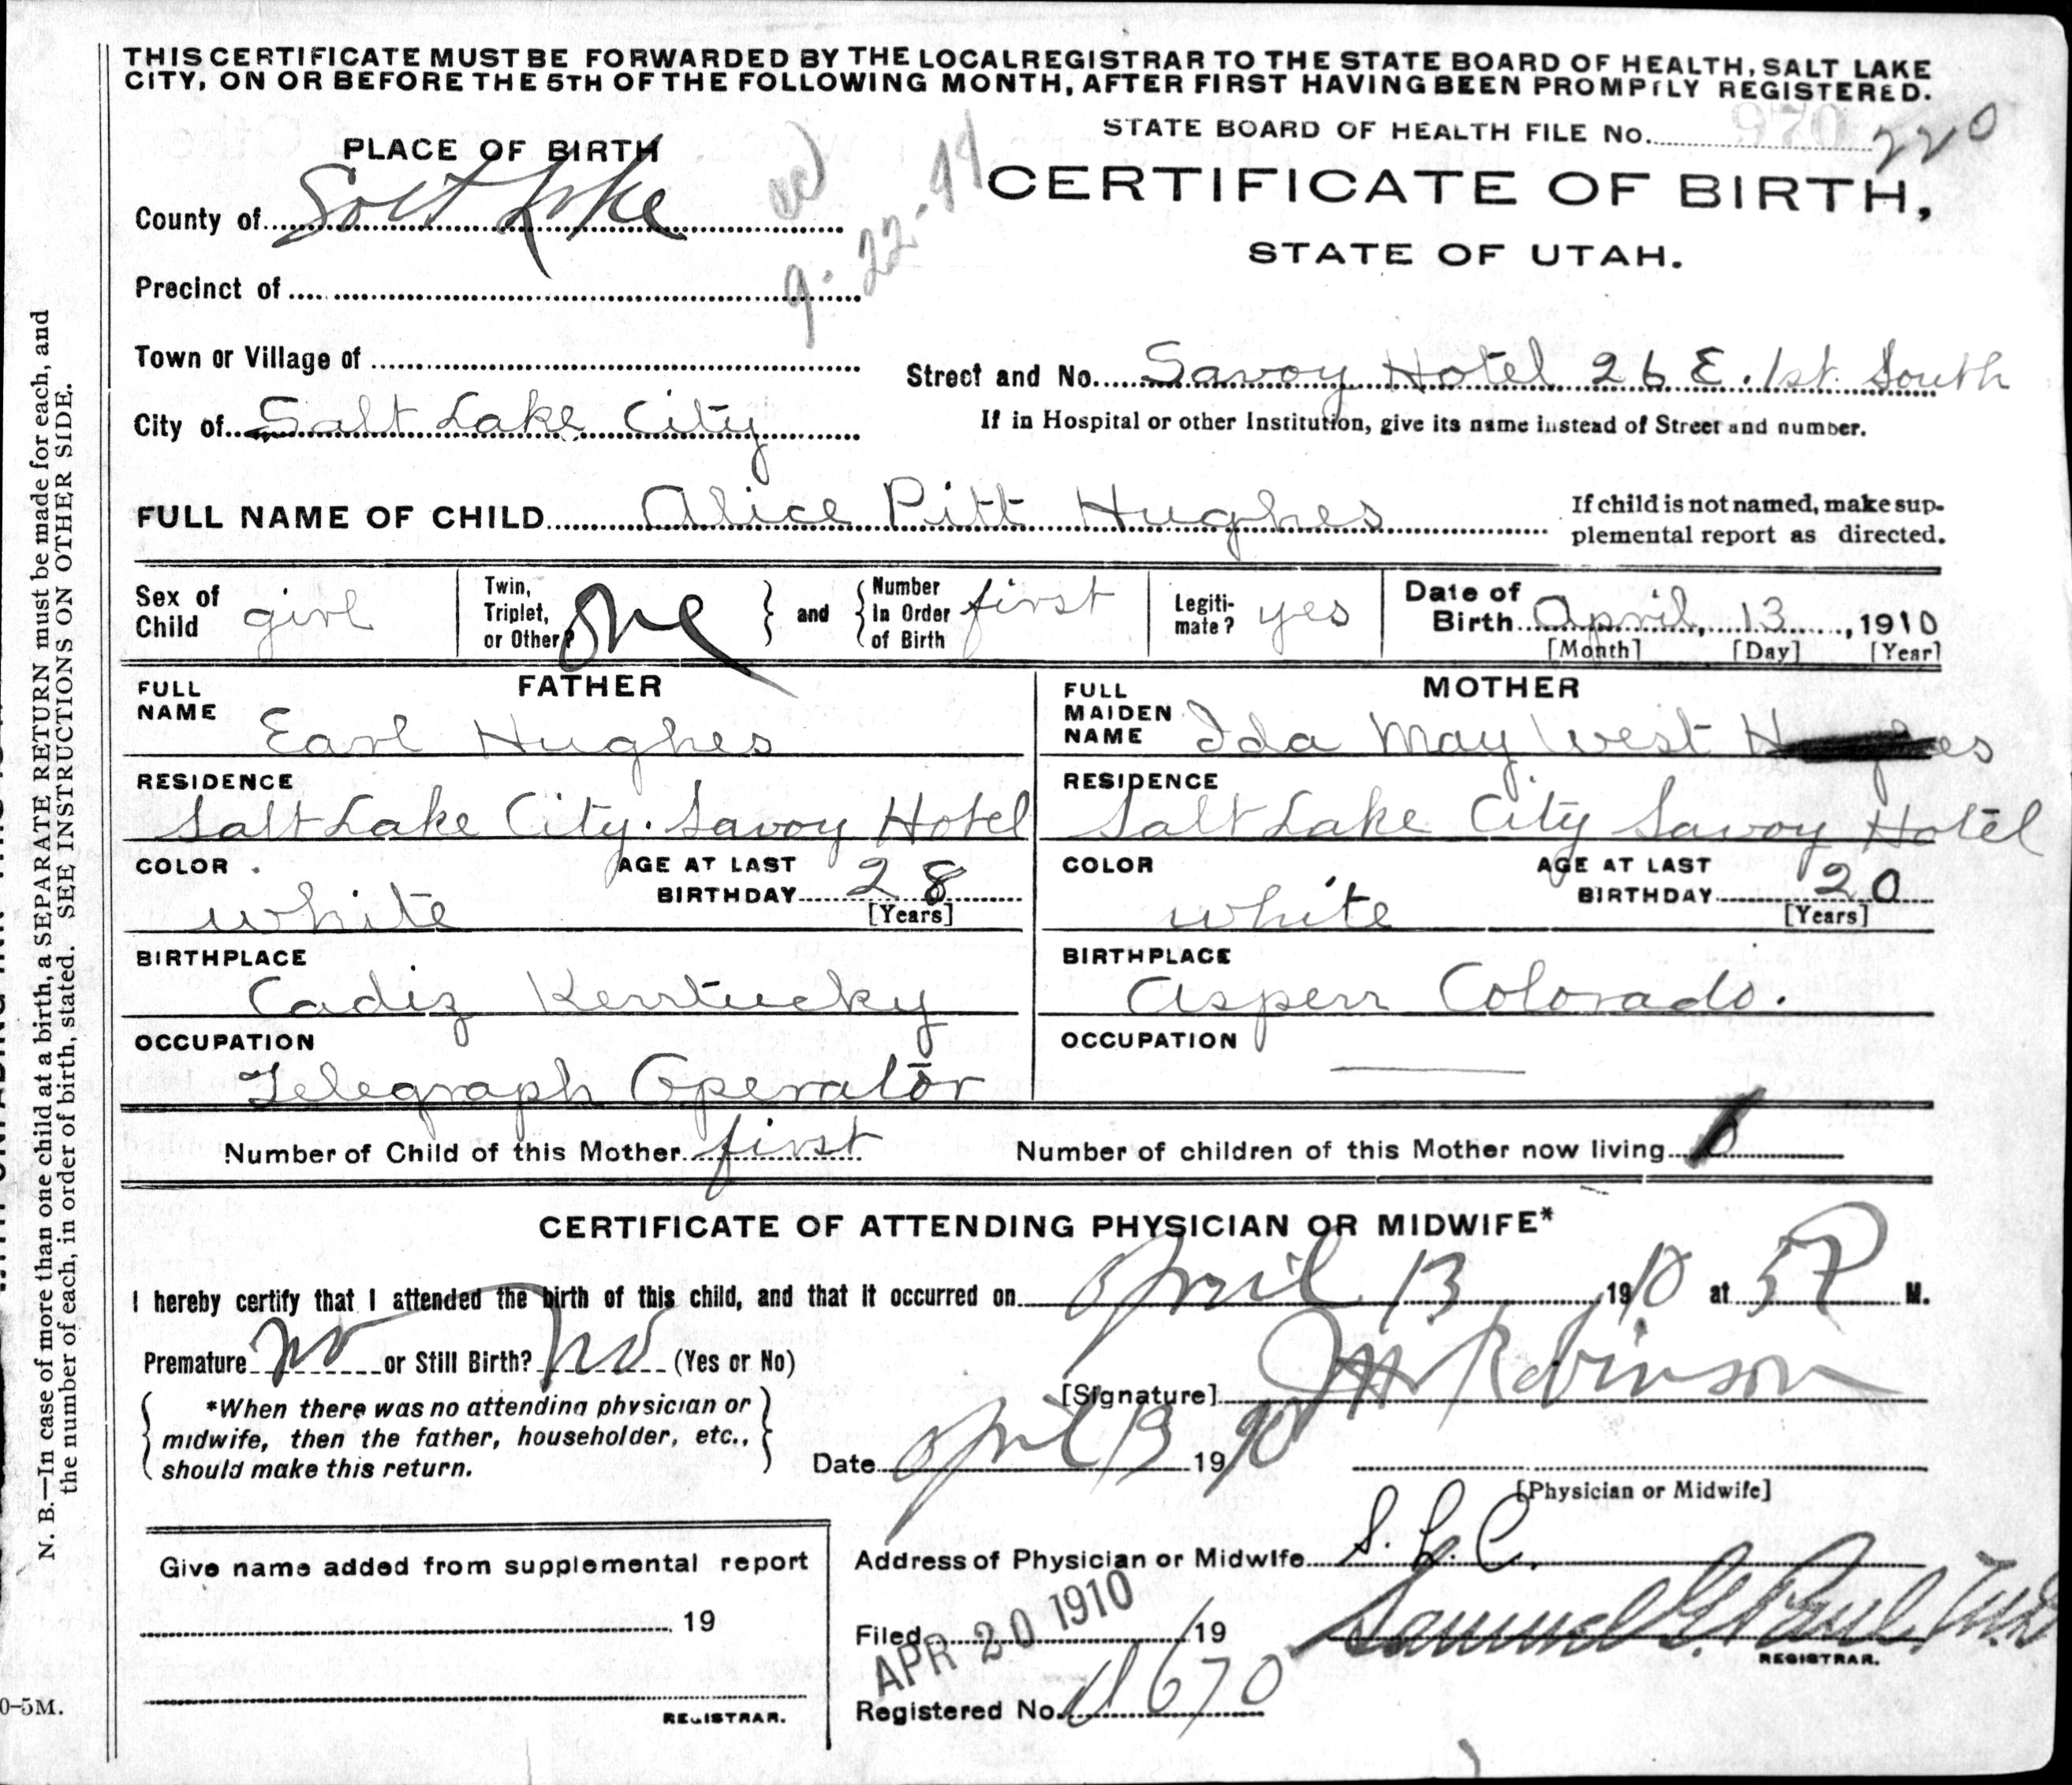 THIS CERTIFICATE MUST BE FORWARDED BY THE LOCAL REGISTRAR TO THE STATE BOARD OF HEALTH, SALT LAKE
CITY, ON OR BEFORE THE 5TH OF THE FOLLOWING MONTH, AFTER FIRST HAVING BEEN PROMPTLY REGISTERED.
STATE BOARD OF HEALTH FILE No. 970 220
PLACE OF BIRTH
CERTIFICATE OF BIRTH,
STATE OF UTAH.
County of Salt Lake
9-22-
Precinct of
Town or Village of
Street and No. Savoy Hotel 26 E. 1st. South
City of Salt Lake City
If in Hospital or other Institution, give its name instead of Street and number.
FULL NAME OF CHILD Alice Pitt Hughes
If child is not named, make sup-
plemental report as directed.
Sex of Child girl
Twin, Triplet, or Other? One
and
Number In Order of Birth first
Legiti-mate? yes
Date of Birth April, 13, 1910
[Month] [Day] [Year]
FATHER
FULL NAME Earl Hughes
RESIDENCE
Salt Lake City. Savoy Hotel
COLOR white
AGE AT LAST BIRTHDAY 28
[Years]
BIRTHPLACE
Cadiz Kentucky
OCCUPATION
Telegraph Operator
MOTHER
FULL MAIDEN NAME Ida May West
RESIDENCE
Salt Lake City Savoy Hotel
COLOR white
AGE AT LAST BIRTHDAY 20
[Years]
BIRTHPLACE
Aspen Colorado.
OCCUPATION
Number of Child of this Mother first
Number of children of this Mother now living
CERTIFICATE OF ATTENDING PHYSICIAN OR MIDWIFE*
I hereby certify that I attended the birth of this child, and that it occurred on April 13 1910 at 5 P M.
Premature no or Still Birth? no (Yes or No)
[Signature] Robinson
*When there was no attending physician or
midwife, then the father, householder, etc.,
should make this return.
Date April 13 1910
[Physician or Midwife]
Address of Physician or Midwife S. L. C.
Give name added from supplemental report
19
REGISTRAR.
Filed 19
APR 20 1910
Samuel G. Paul, M.D
REGISTRAR.
Registered No. 670
N. B.—In case of more than one child at a birth, a SEPARATE RETURN must be made for each, and
the number of each, in order of birth, stated. SEE INSTRUCTIONS ON OTHER SIDE.
0-5M.